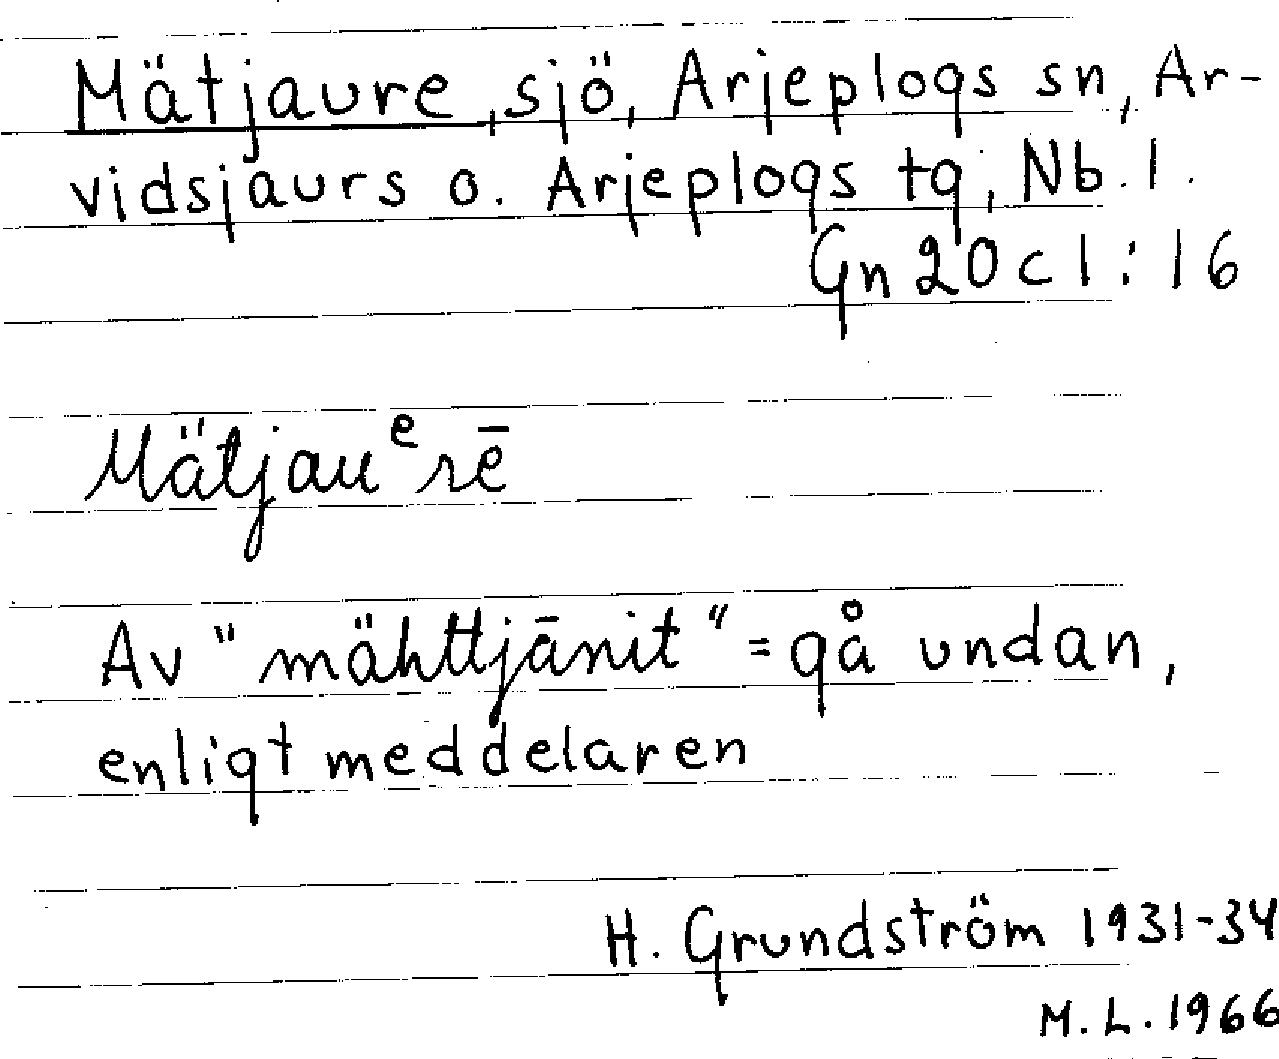 Mätjaure, sjö, Arjeplogs sn, Ar-
vidsjaurs o. Arjeplogs tg, Nb. l.
Gn 20 c 1 : 16
Mätjauᵉrē
Av "mähttjānit" = gå undan,
enligt meddelaren
H. Grundström 1931-34
M. L. 1966